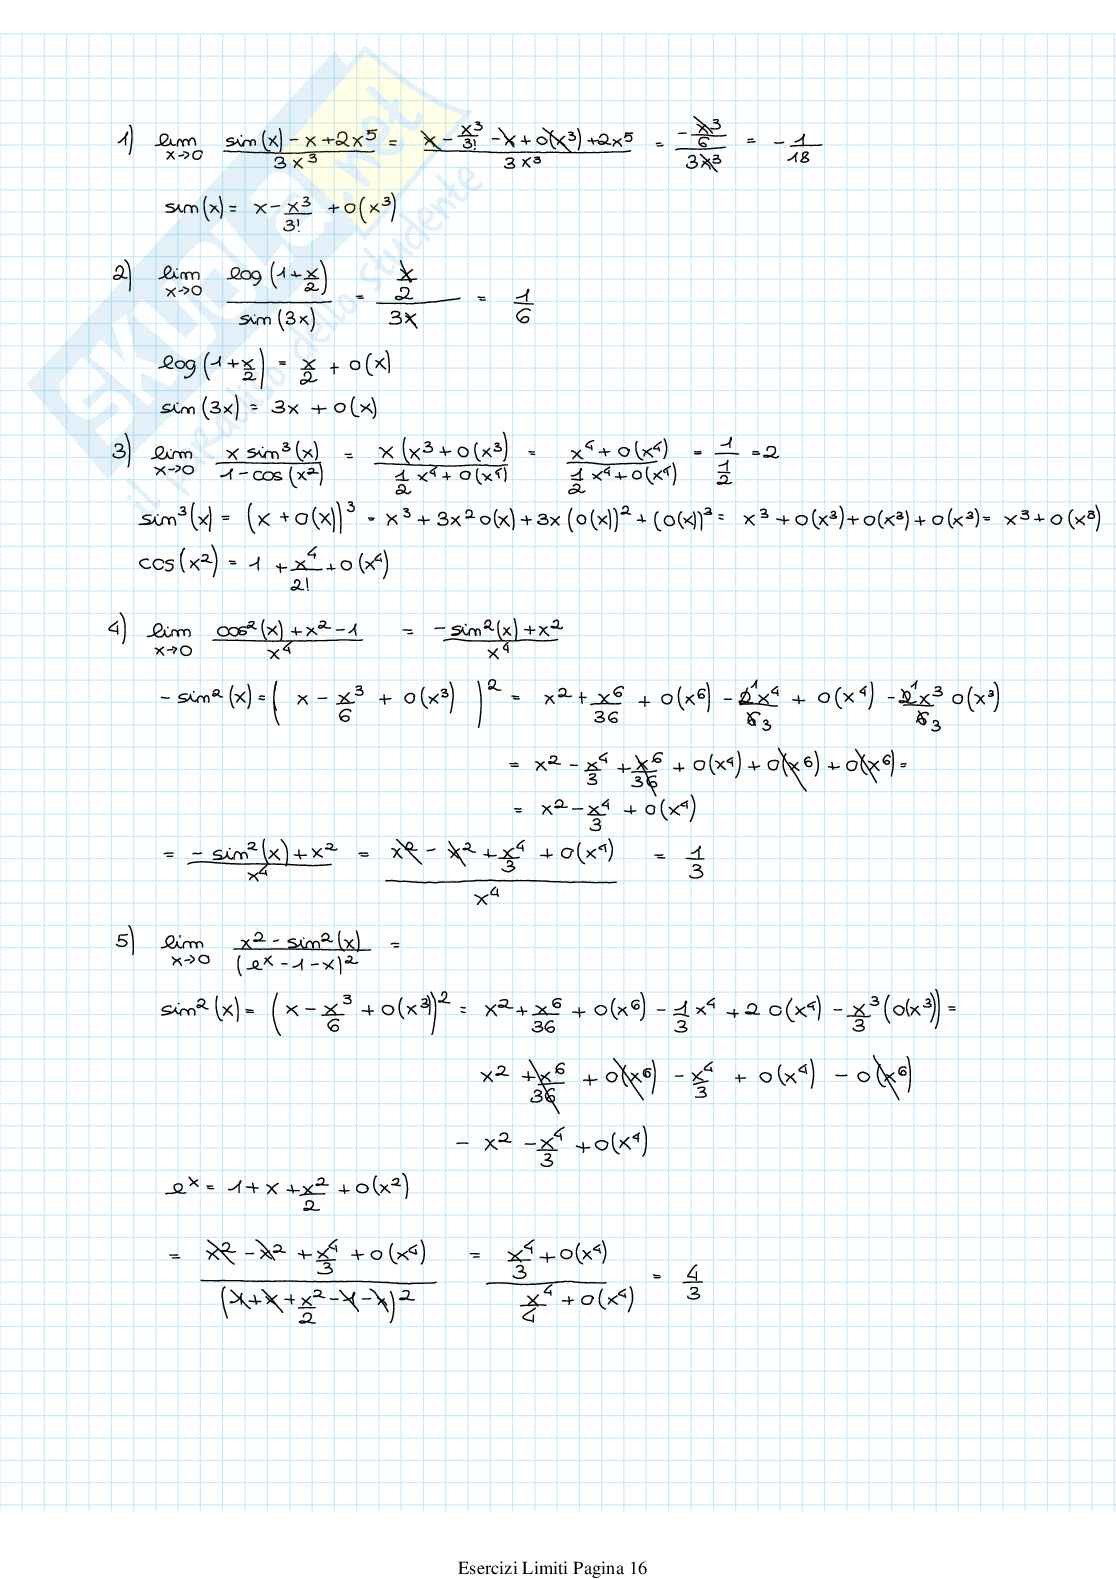 1) lim x→0 (sin(x) - x + 2x^5)/(3x^3) = (x - x^3/3! - x + o(x^3) + 2x^5)/(3x^3) = (-x^3/6)/(3x^3) = -1/18
sin(x) = x - x^3/3! + o(x^3)
2) lim x→0 log(1+x/2)/sin(3x) = (x/2)/(3x) = 1/6
log(1+x/2) = x/2 + o(x)
sin(3x) = 3x + o(x)
3) lim x→0 (x sin^3(x))/(1-cos(x^2)) = x(x^3 + o(x^3))/(1/2 x^4 + o(x^4)) = (x^4 + o(x^4))/(1/2 x^4 + o(x^4)) = 1/(1/2) = 2
sin^3(x) = (x + o(x))^3 = x^3 + 3x^2 o(x) + 3x (o(x))^2 + (o(x))^3 = x^3 + o(x^3) + o(x^3) + o(x^3) = x^3 + o(x^3)
cos(x^2) = 1 + x^4/2! + o(x^4)
4) lim x→0 (cos^2(x) + x^2 - 1)/x^4 = (-sin^2(x) + x^2)/x^4
- sin^2(x) = (x - x^3/6 + o(x^3))^2 = x^2 + x^6/36 + o(x^6) - 2x^4/6 3 + o(x^4) - 2x^3/6 3 o(x^3)
= x^2 - x^4/3 + x^6/36 + o(x^4) + o(x^6) + o(x^6) =
= x^2 - x^4/3 + o(x^4)
= (-sin^2(x) + x^2)/x^4 = (x^2 - x^2 + x^4/3 + o(x^4))/x^4 = 1/3
5) lim x→0 (x^2 - sin^2(x))/(e^x - 1 - x)^2 =
sin^2(x) = (x - x^3/6 + o(x^3))^2 = x^2 + x^6/36 + o(x^6) - 1/3 x^4 + 2 o(x^4) - x^3/3 (o(x^3)) =
x^2 + x^6/36 + o(x^6) - x^4/3 + o(x^4) - o(x^6)
- x^2 - x^4/3 + o(x^4)
e^x = 1 + x + x^2/2 + o(x^2)
= (x^2 - x^2 + x^4/3 + o(x^4))/(1 + x + x^2/2 - 1 - x)^2 = (x^4/3 + o(x^4))/(x^4/4 + o(x^4)) = 4/3
SKUOLA.net
il paradiso dello studente
Esercizi Limiti Pagina 16